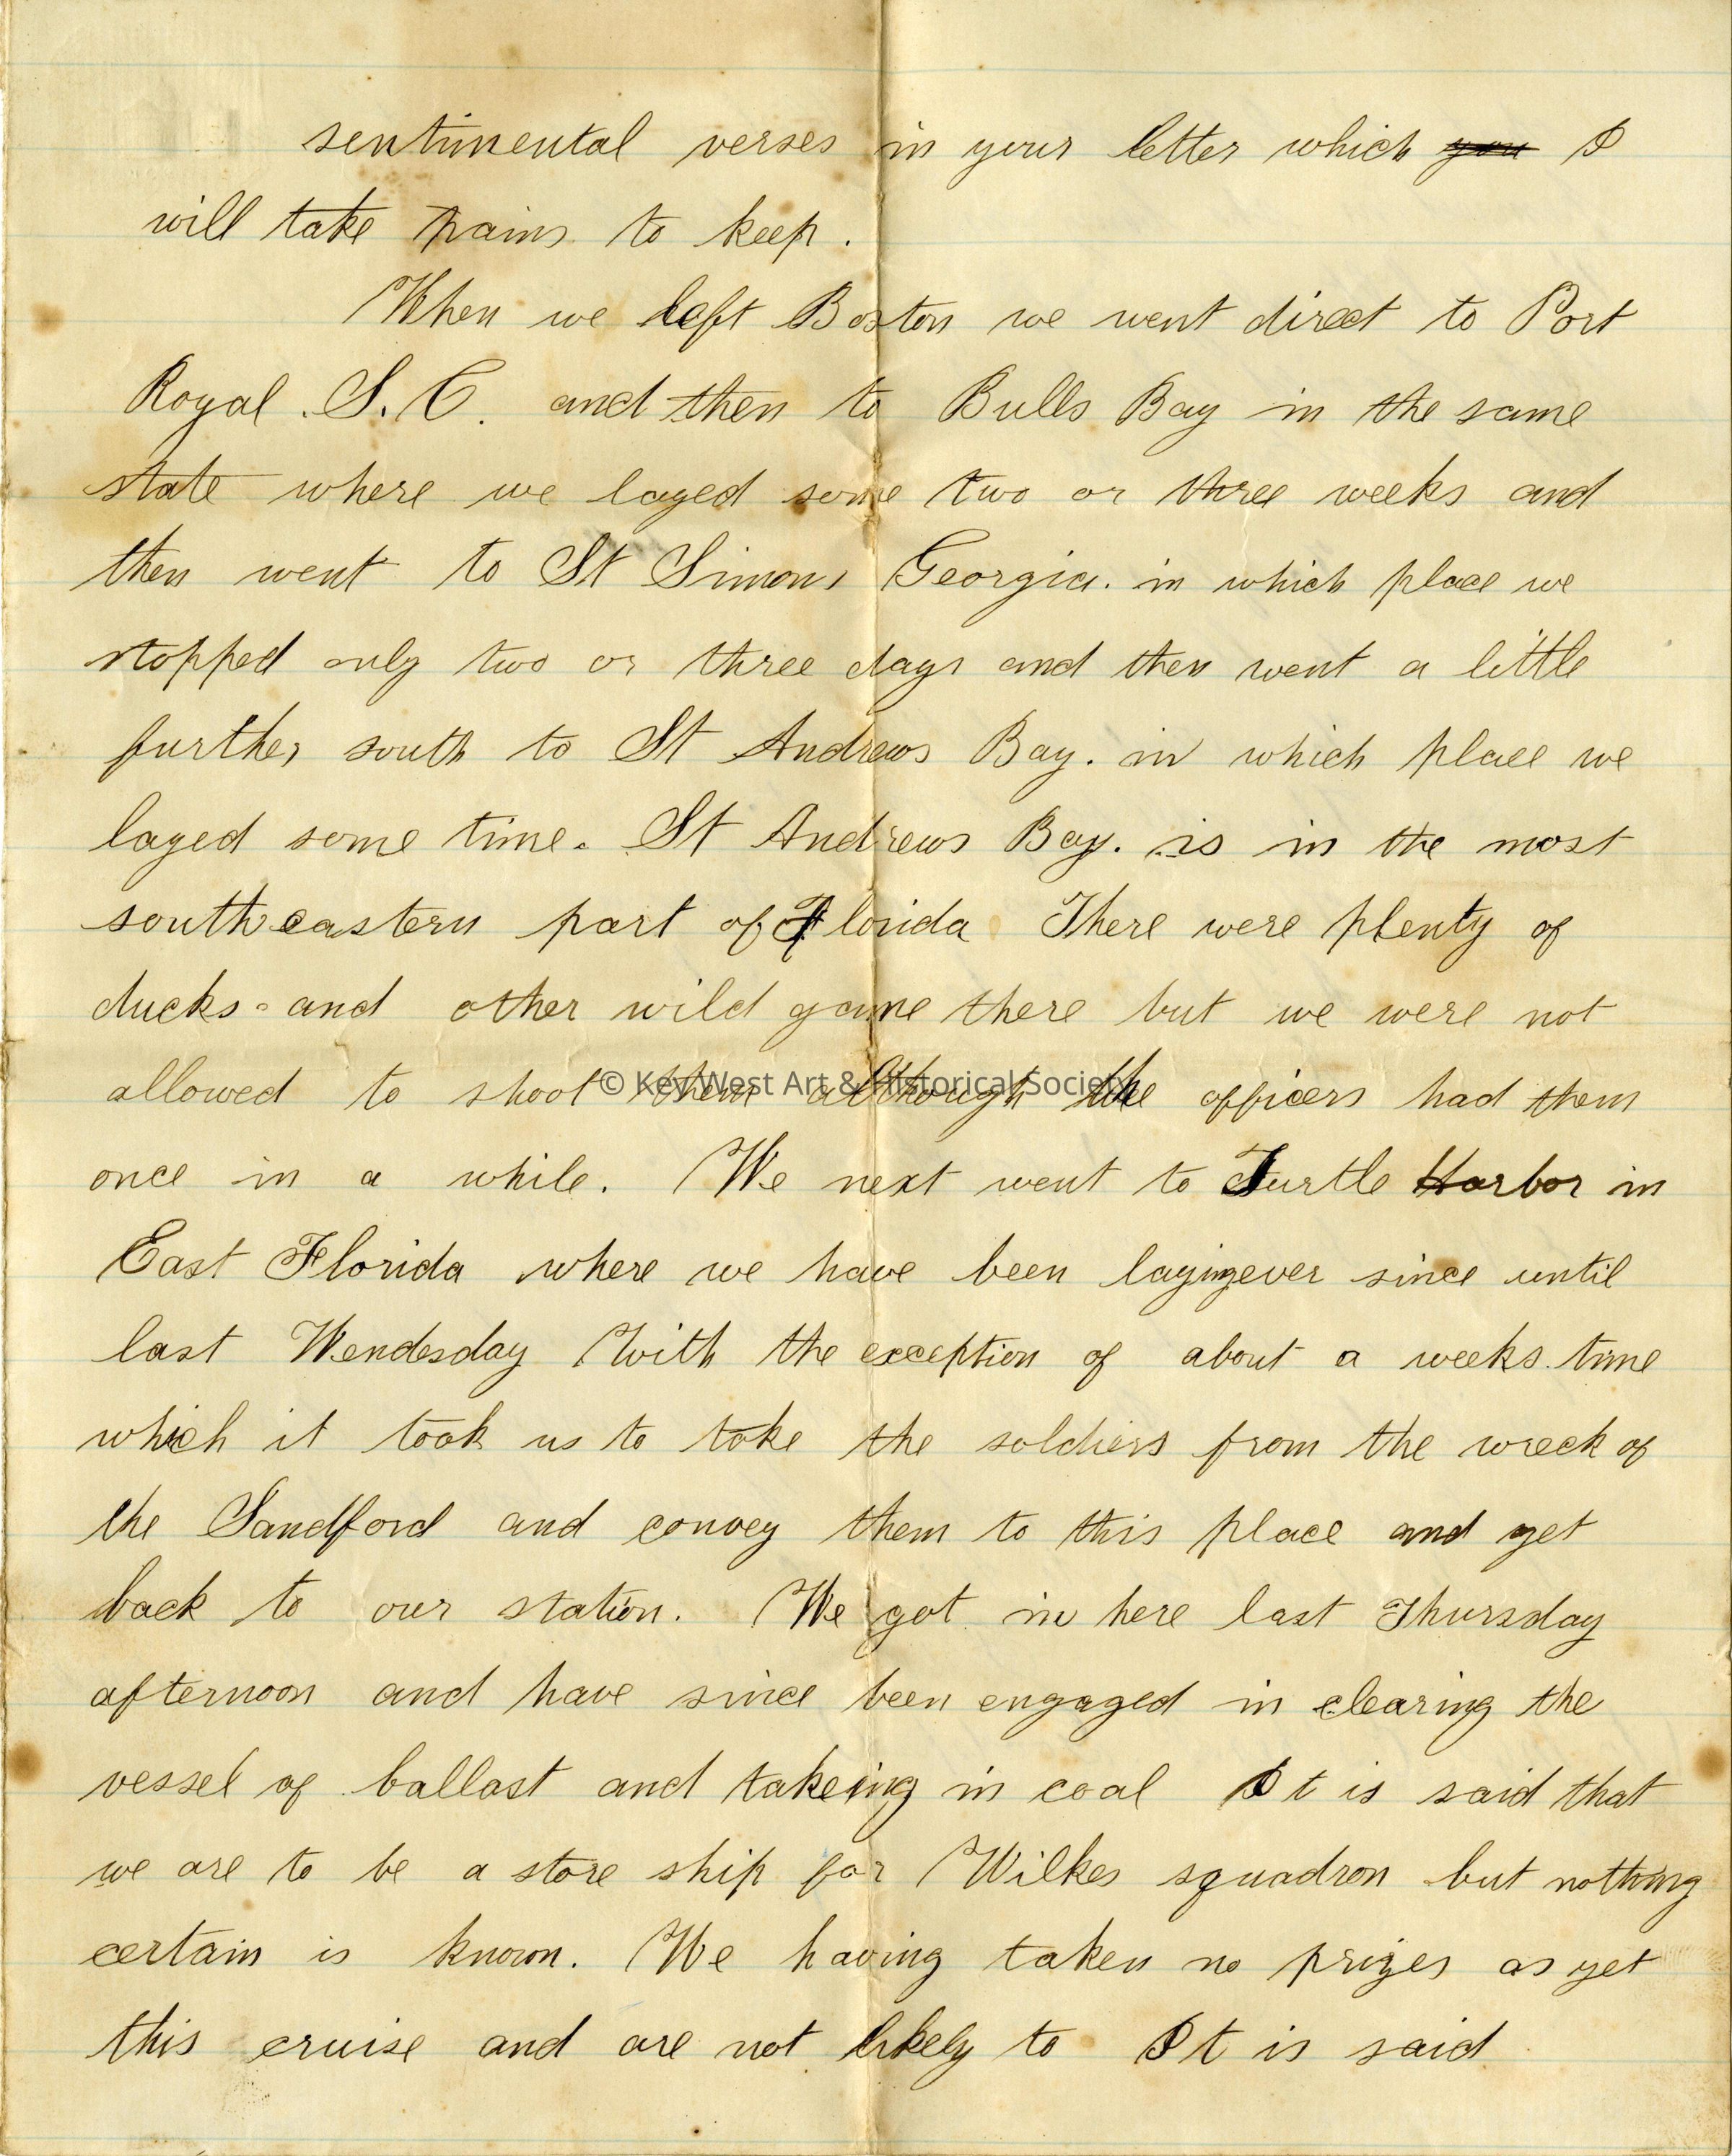 sentimental verses in your letter which you I
will take pains to keep.
When we left Boston we went direct to Port
Royal. S. C. and then to Bulls Bay in the same
state where we layed some two or three weeks and
then went to St Simons Georgia. in which place we
stopped only two or three days and then went a little
further south to St Andrews Bay. in which place we
layed some time. St Andrews Bay. is in the most
southeastern part of Florida There were plenty of
ducks and other wild game there but we were not
allowed to shoot them although the officers had them
© Key West Art & Historical Society
once in a while. We next went to Turtle Harbor in
East Florida where we have been laying ever since until
last Wendesday With the exception of about a weeks. time
which it took us to take the soldiers from the wreck of
the Sandford and convey them to this place and get
back to our station. We got in here last Thursday
afternoon and have since been engaged in clearing the
vessel of ballast and takeing in coal It is said that
we are to be a store ship for Wilkes squadron but nothing
certain is known. We having taken no prizes as yet
this cruise and are not likely to It is said